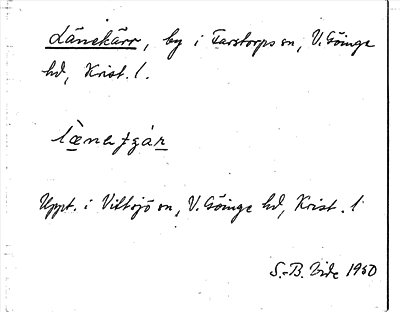 Länskärr, by i Farstorps sn, V. Göinge
hd, Krist. l.
Uppt. i Vittsjö sn, V. Göinge hd, Krist. l
S.-B. Vide 1950